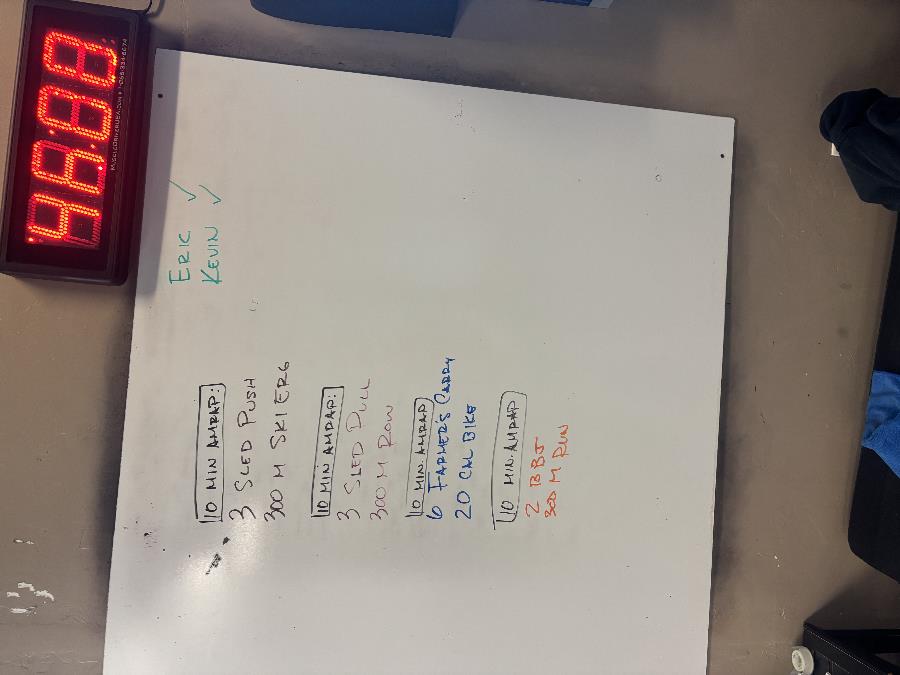 48:88
ERIC ✓
KEVIN ✓
10 MIN AMRAP:
3 SLED PUSH
300 M SKI ERG
10 MIN AMRAP:
3 SLED PULL
300 M ROW
10 MIN. AMRAP
6 FARMER'S CARRY
20 CAL BIKE
10 MIN. AMRAP
2 BBJ
300 M RUN